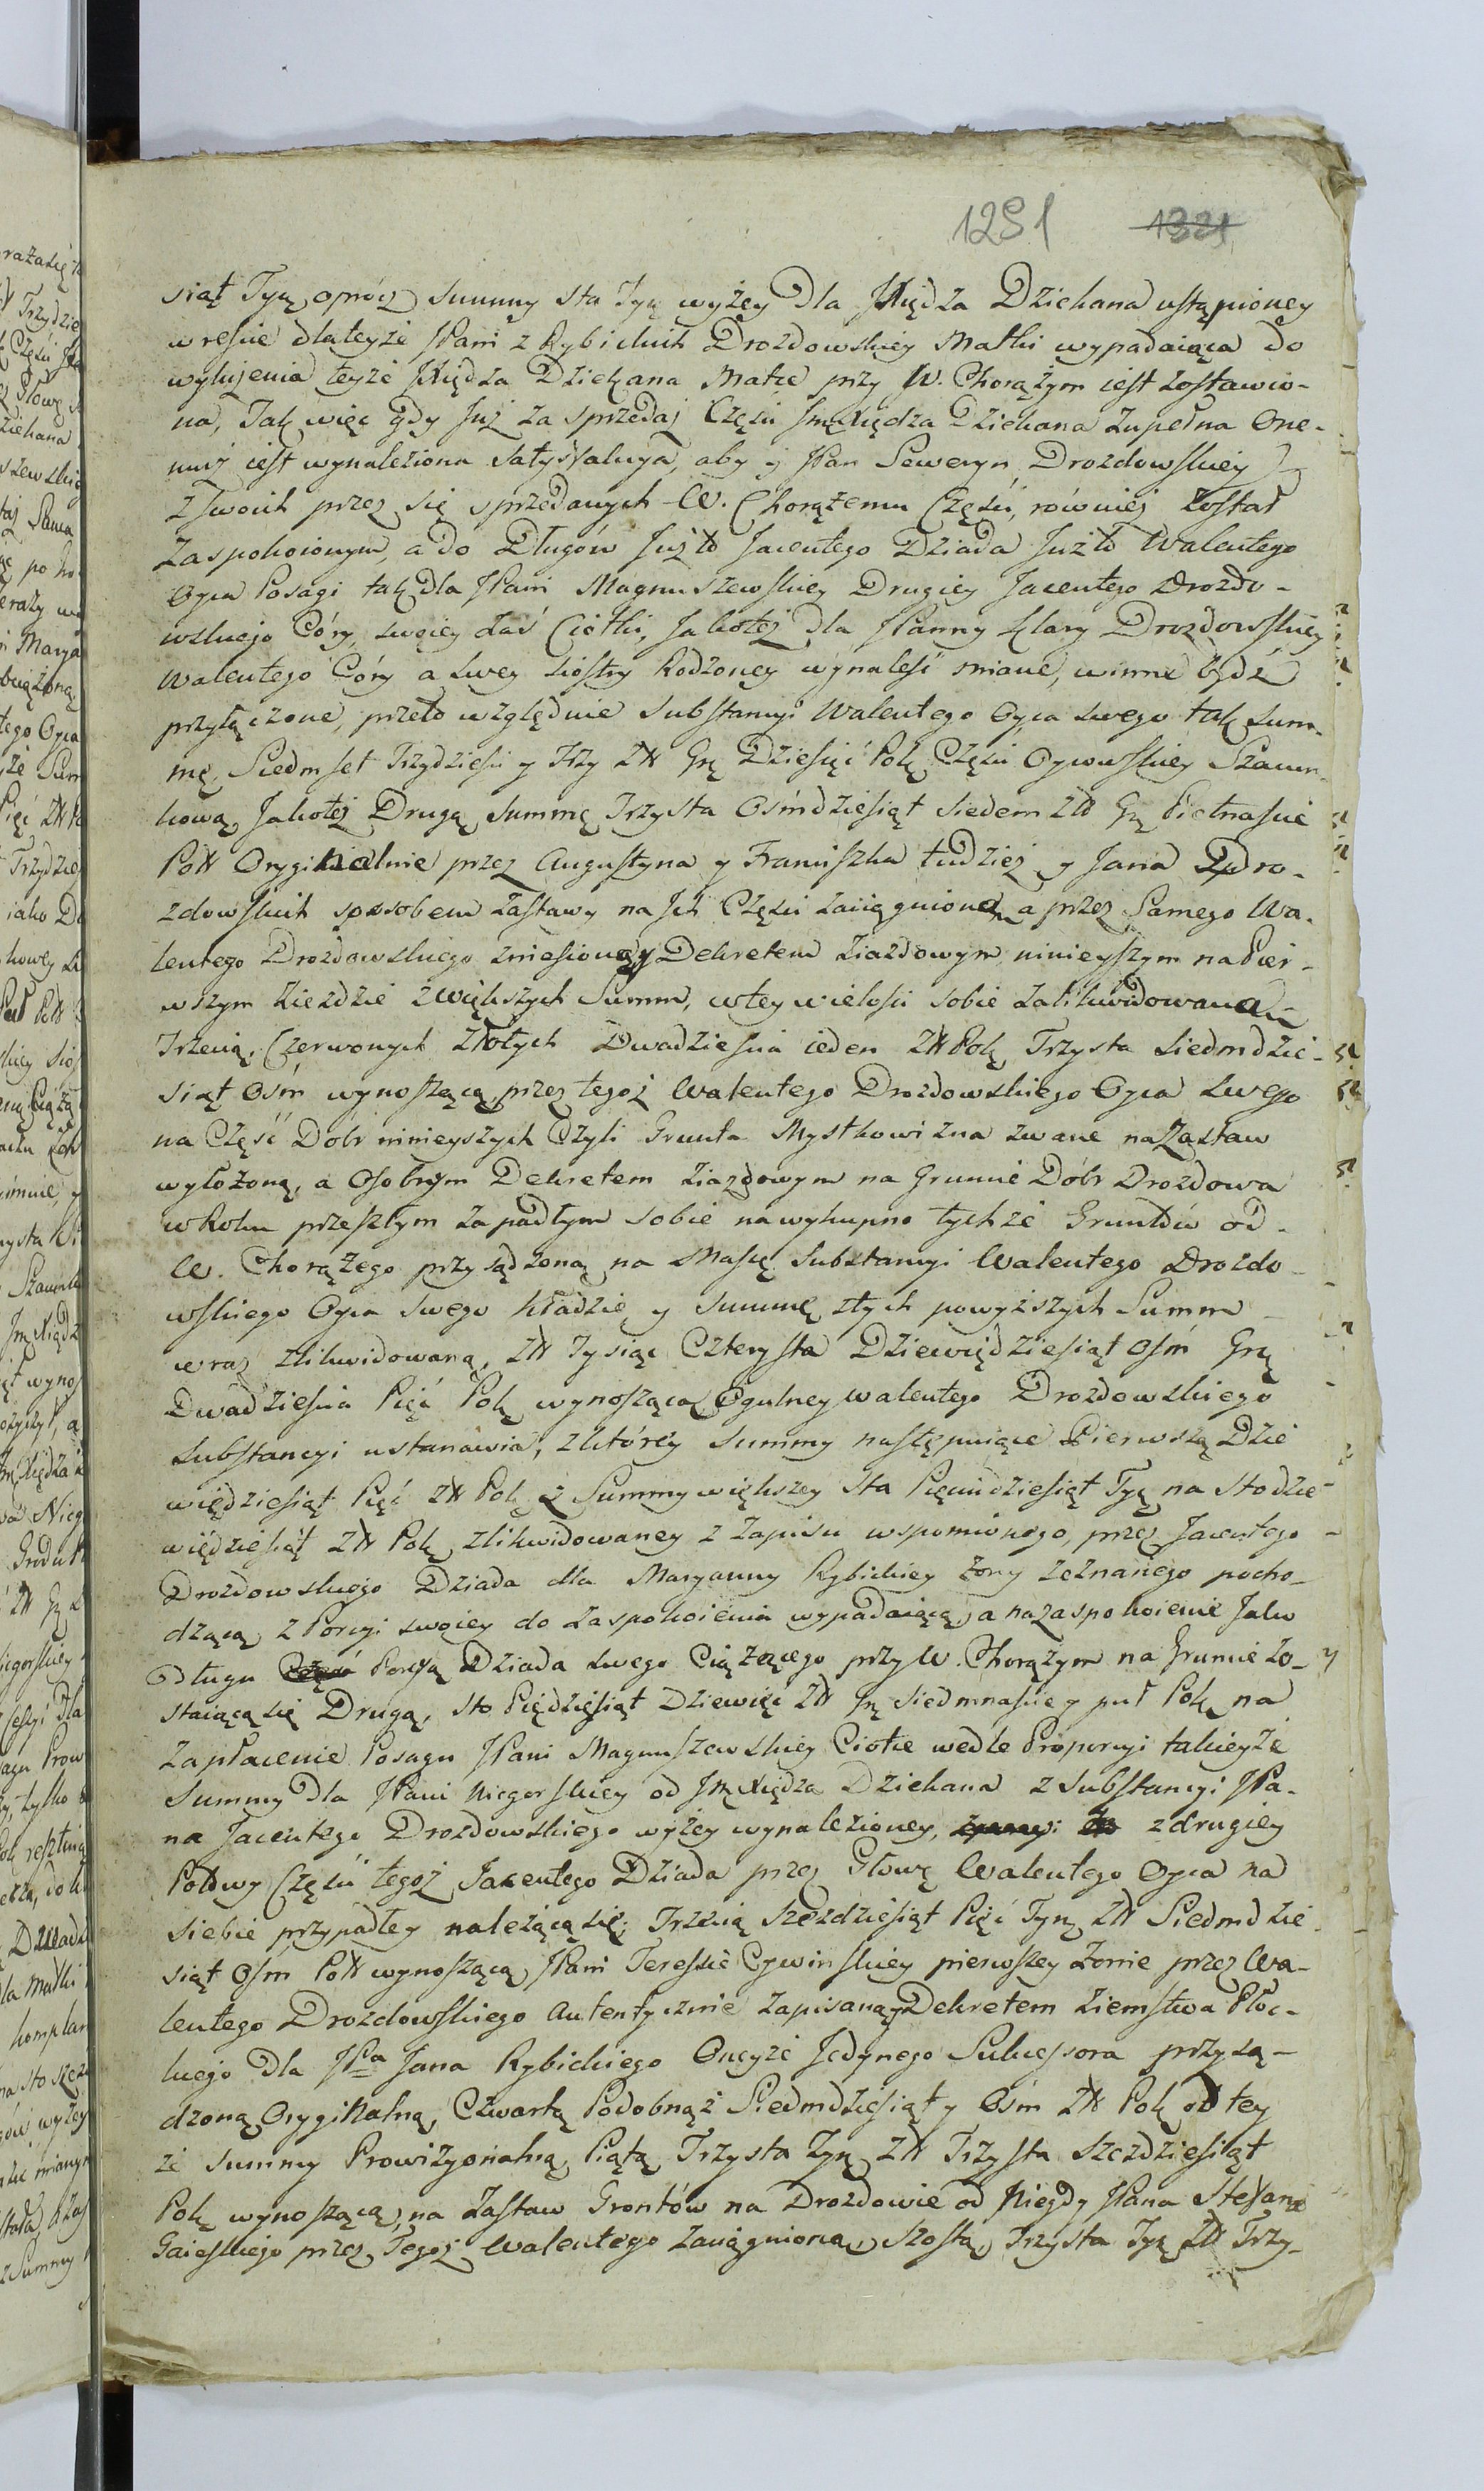 1291 1321
siąt Tyą, oprócz summy sta Tyą wyżey dla JXiędza Dziekana ustąpioney
w reście dlateyże JPani z Rybickich Drozdowskiey Matki wypadaiąca do
teyże JXiędza Dziekana Matce przy W. Chorążym iest zostawio-
na, Tak więc gdy Już za sprzedaj Części JmXiędza Dziekana zupełna One-
muż iest wynaleziona satysfakcya, aby y JPan Seweryn Drozdowskiey
z swoich przez się sprzedanych W. Chorążemu Części, równiej został
Zaspokoionym, a do Długów Jużto Jacentego Dziada Jużto Walentego
Oyca Posagi tak dla JPani Magnuszewskiey Drugiey Jacentego Drozdo-
wskiego Córy, swoiey zaś Ciotki, Jakotej dla JPanny Klary Drozdowskiey
Walentego Córy a swey siostry Rodzoney wynaleść miane, winne bydź
przyłączone, przeto względnie Substancyi Walentego Oyca swego tak sum-
mę, Siedmset Trzydzieści y Trzy Zł Grę Dziesięć Polę Części Cywińskiey Szacun-
kową, Jakotej Drugą Summę Trzysta Ośmdziesiąt siedem Zł Grę Pietnaście
Poll Oryginalnie przez Augustyna y Franciszka tudzież y Jana Dro-
zdowskich sposobem zastawy na Jch Części zaciągnioną a przez Samego Wa-
lentego Drozdowskiego zniesioną y Dekretem ziazdowym ninieyszym na Pier-
wszym Zieździe z większych Summ, wtey wielości sobie zalikwidowaną
Trzecią, Czerwonych Złotych Dwadzieścia ieden Zł Polę Trzysta siedmdzie-
siąt Ośm wynoszącą, przez tegoż Walentego Drozdowskiego Oyca swego
na Część Dobr ninieyszych Czyli Grunta Mystkowizna zwane na Zastaw
wyłożoną, a Osobnym Dekretem ziazdowym na Gruncie Dóbr Drozdowa
w Roku przeszłym zapadłym sobie na wykupno tychże Gruntów od
W. Chorążego przysądzoną na Massę Substancyi Walentego Drozdo-
wskiego Oyca swego kładzie y summę ztych powyższych Summ
wraz zlikwidowaną, Zł Tysiąc Czterysta Dziewiędziesiąt Ośm Grę
Dwadzieścia Pięć Polę wynoszącą Ogulney Walentego Drozdowskiego
Substancyi ustanawia, z którey summy następuiące Pierwszą Dzie
więdziesiąt Pięć Zł Polę z Summy większey Sta Pięciudziesiąt Tyą na Stodzie-
więdziesiąt Zł Polę zlikwidowaney z Zapisu wspomionego, przez Jacentego
Drozdowskiego Dziada dla Maryanny Rybickiey żony zeznanego pocho-
dzącą z Porcyi swoiey do zaspokoienia wypadaiącą, a na zaspokoienie Jako
Długu Porcyą Dziada swego Ciążącego przy W. Chorążym na Gruncie zo-
staiącą się Drugą, sto Pięćdziesiąt Dziewięć Zł Grę siedmnaście y puł Polę na
Zapłacenie Posagu JPani Magnuszewskiey Ciotce wedle Proporcyi takieyże
Summy dla JPani Niegorskiey od JmXiędza Dziekana z Substancyi JPa-
na Jacentego Drozdowskiego wyżey wynalezioney, zdrugiey
Połowy Części tegoż Jacentego Dziada przez Głowę Walentego Oyca na
siebie przypadłey należącą się, Trzecią Szeździesiąt Pięć Tyną Zł Siedmdzie
siąt Ośm Poll wynoszącą JPani Teressie Cywinskiey pierwszey żonie przez Wa-
lentego Drozdowskiego Autentycznie zapisaną y Dekretem Ziemstwa Płoc-
kiego Dla JPa Jana Rybickiego Oneyże Jedynego Sukcessora przysą-
dzoną Oryginalną, Czwartą Podobnąż Siedmdziesiąt y Ośm Zł Polę od tey
że summy Prowizyonalną, Piątą Trzysta Tyną Zł Trzysta Szeździesiąt
Polę wynoszącą, na Zastaw Grontów na Drozdowie od Niegdy JPana Stefana
Gaieskiego przez Tegoż Walentego zaciągnioną, szostą, Trzysta Tyą Zł Trzy-